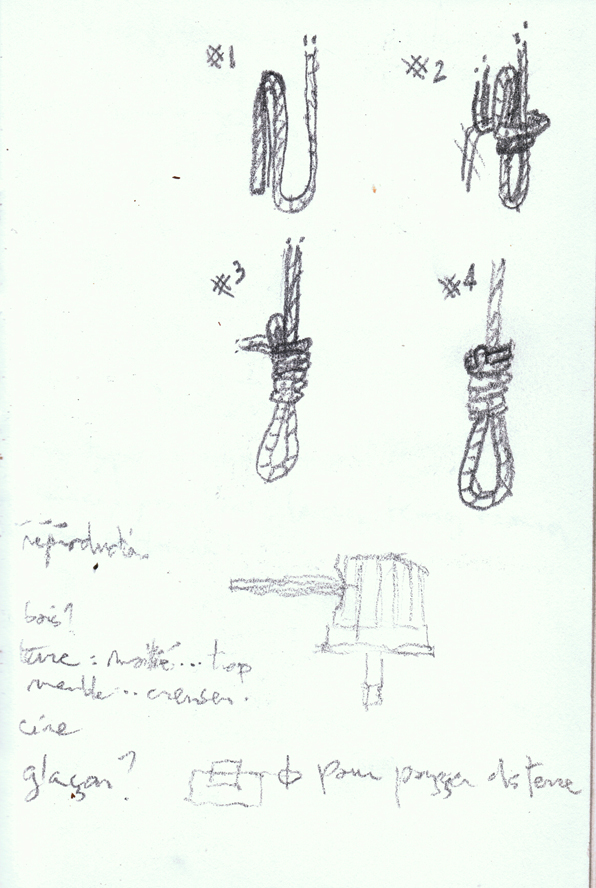 #1
#2
#3
#4
reproduction
bois?
terre : ... trop
meuble .. creuser.
cire
glaçon?
pour de terre